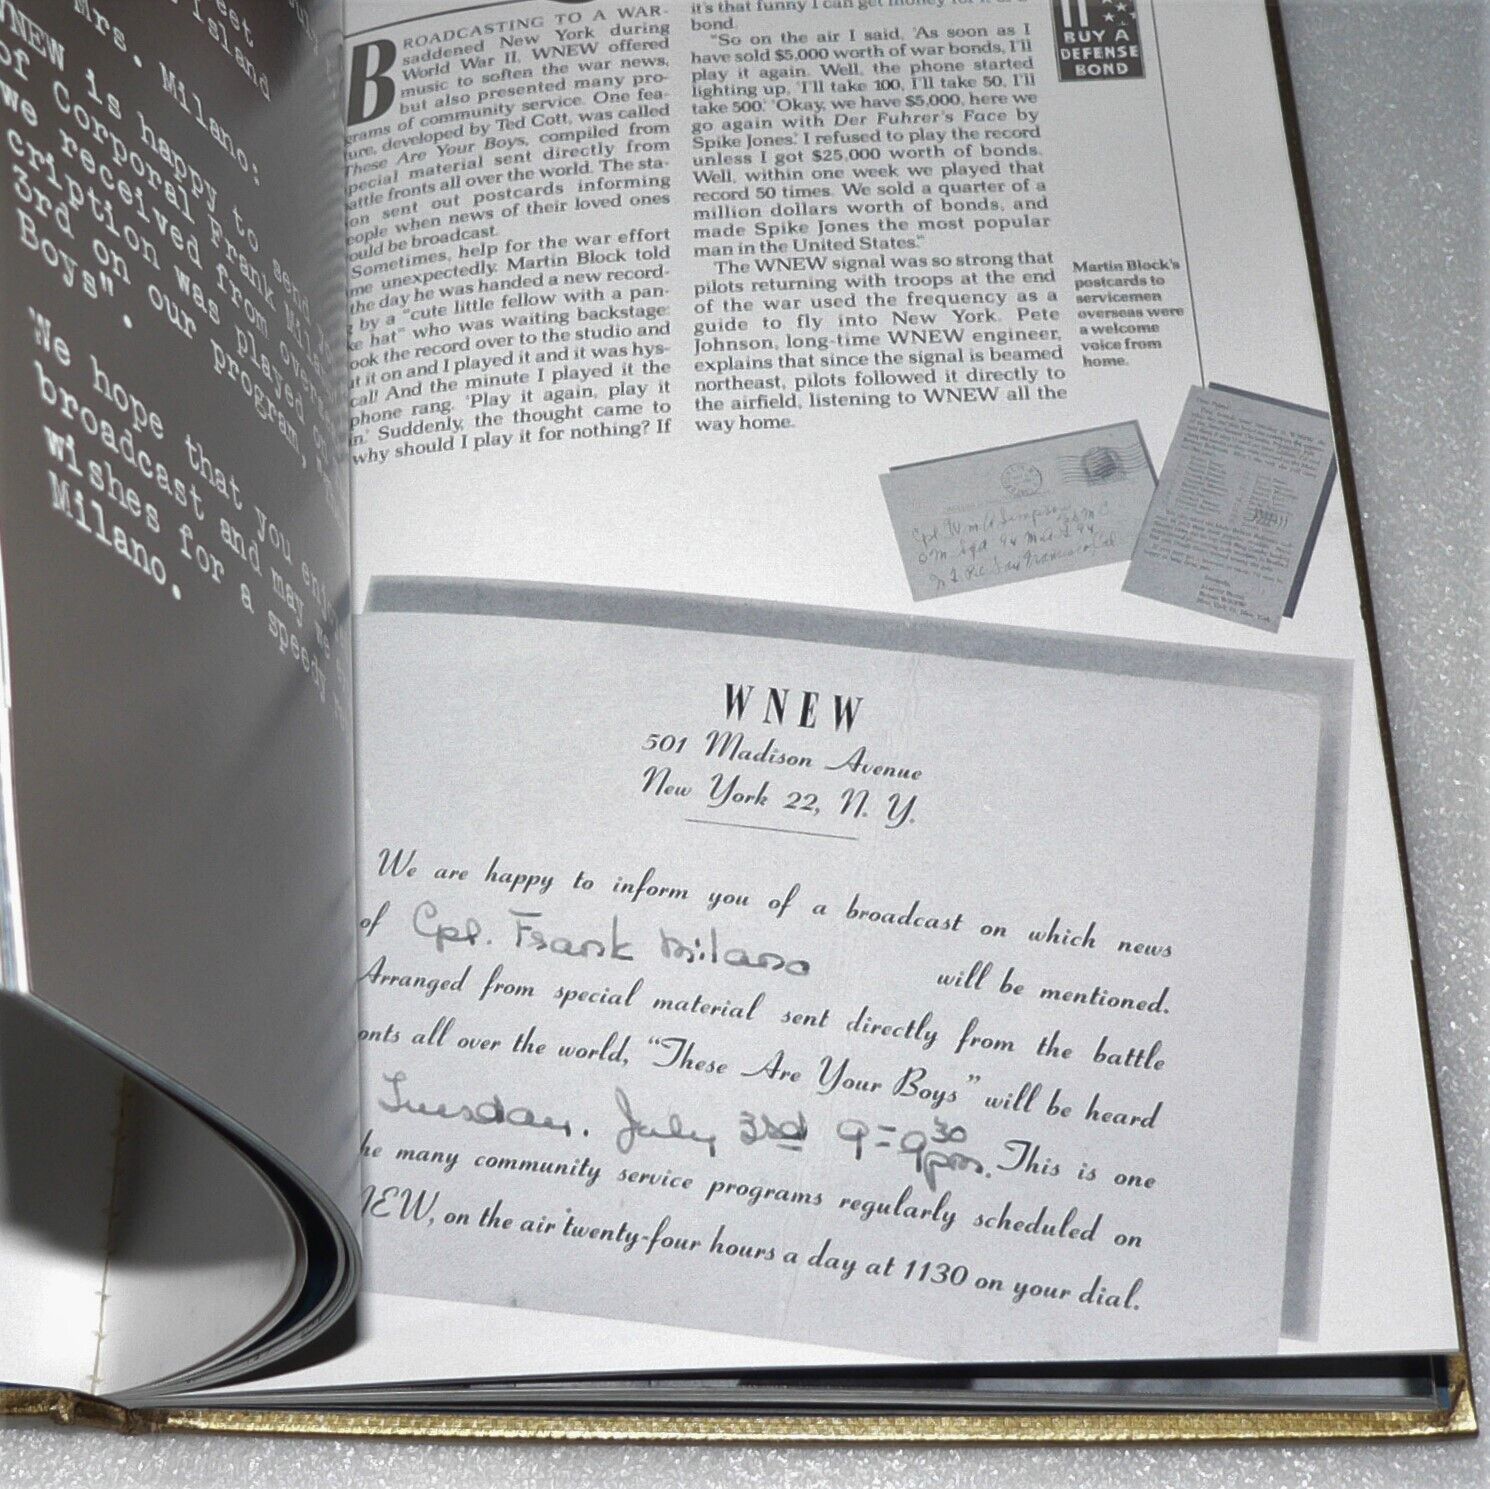 Mrs. Milano:
WNEW is happy to send
of Corporal Frank Milano
we received from overseas
cription was played on
3rd on our program,
Boys".
We hope that you enjoy
broadcast and may we
wishes for a speedy
Milano.
BROADCASTING TO A WAR-
saddened New York during
World War II, WNEW offered
music to soften the war news,
but also presented many pro-
grams of community service. One fea-
ture, developed by Ted Cott, was called
These Are Your Boys, compiled from
pecial material sent directly from
attle fronts all over the world. The sta-
ion sent out postcards informing
eople when news of their loved ones
ould be broadcast.
Sometimes, help for the war effort
me unexpectedly. Martin Block told
the day he was handed a new record-
g by a "cute little fellow with a pan-
ke hat" who was waiting backstage:
ook the record over to the studio and
t it on and I played it and it was hys-
cal! And the minute I played it the
phone rang. 'Play it again, play it
in.' Suddenly, the thought came to
why should I play it for nothing? If
it's that funny I can get money for it or a
bond.
"So on the air I said, 'As soon as I
have sold $5,000 worth of war bonds, I'll
play it again. Well, the phone started
lighting up, 'I'll take 100, I'll take 50, I'll
take 500.' 'Okay, we have $5,000, here we
go again with Der Fuhrer's Face by
Spike Jones.' I refused to play the record
unless I got $25,000 worth of bonds.
Well, within one week we played that
record 50 times. We sold a quarter of a
million dollars worth of bonds, and
made Spike Jones the most popular
man in the United States."
The WNEW signal was so strong that
pilots returning with troops at the end
of the war used the frequency as a
guide to fly into New York. Pete
Johnson, long-time WNEW engineer,
explains that since the signal is beamed
northeast, pilots followed it directly to
the airfield, listening to WNEW all the
way home.
BUY A
DEFENSE
BOND
Martin Block's
postcards to
servicemen
overseas were
a welcome
voice from
home.
Cpl Wm Simpson
San Francisco Cal
WNEW
501 Madison Avenue
New York 22, N. Y.
We are happy to inform you of a broadcast on which news
of Cpl. Frank Milano will be mentioned.
Arranged from special material sent directly from the battle
onts all over the world, "These Are Your Boys" will be heard
Tuesday. July 3rd 9=9 30 pm. This is one
he many community service programs regularly scheduled on
NEW, on the air twenty-four hours a day at 1130 on your dial.